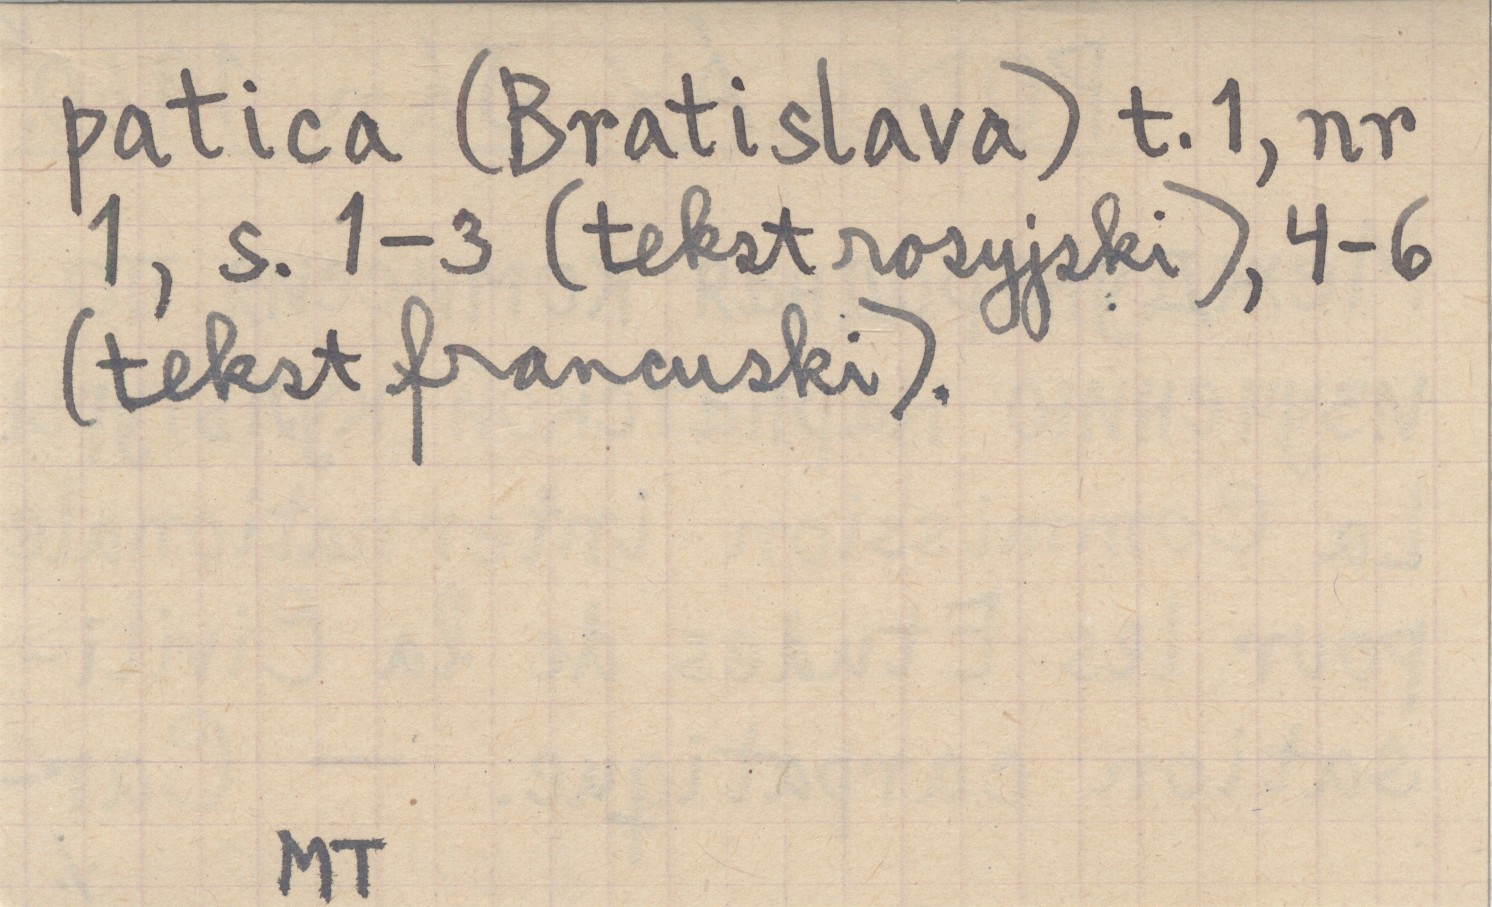 patica (Bratislava) t. 1, nr
1, s. 1-3 (tekst rosyjski), 4-6
(tekst francuski).
MT